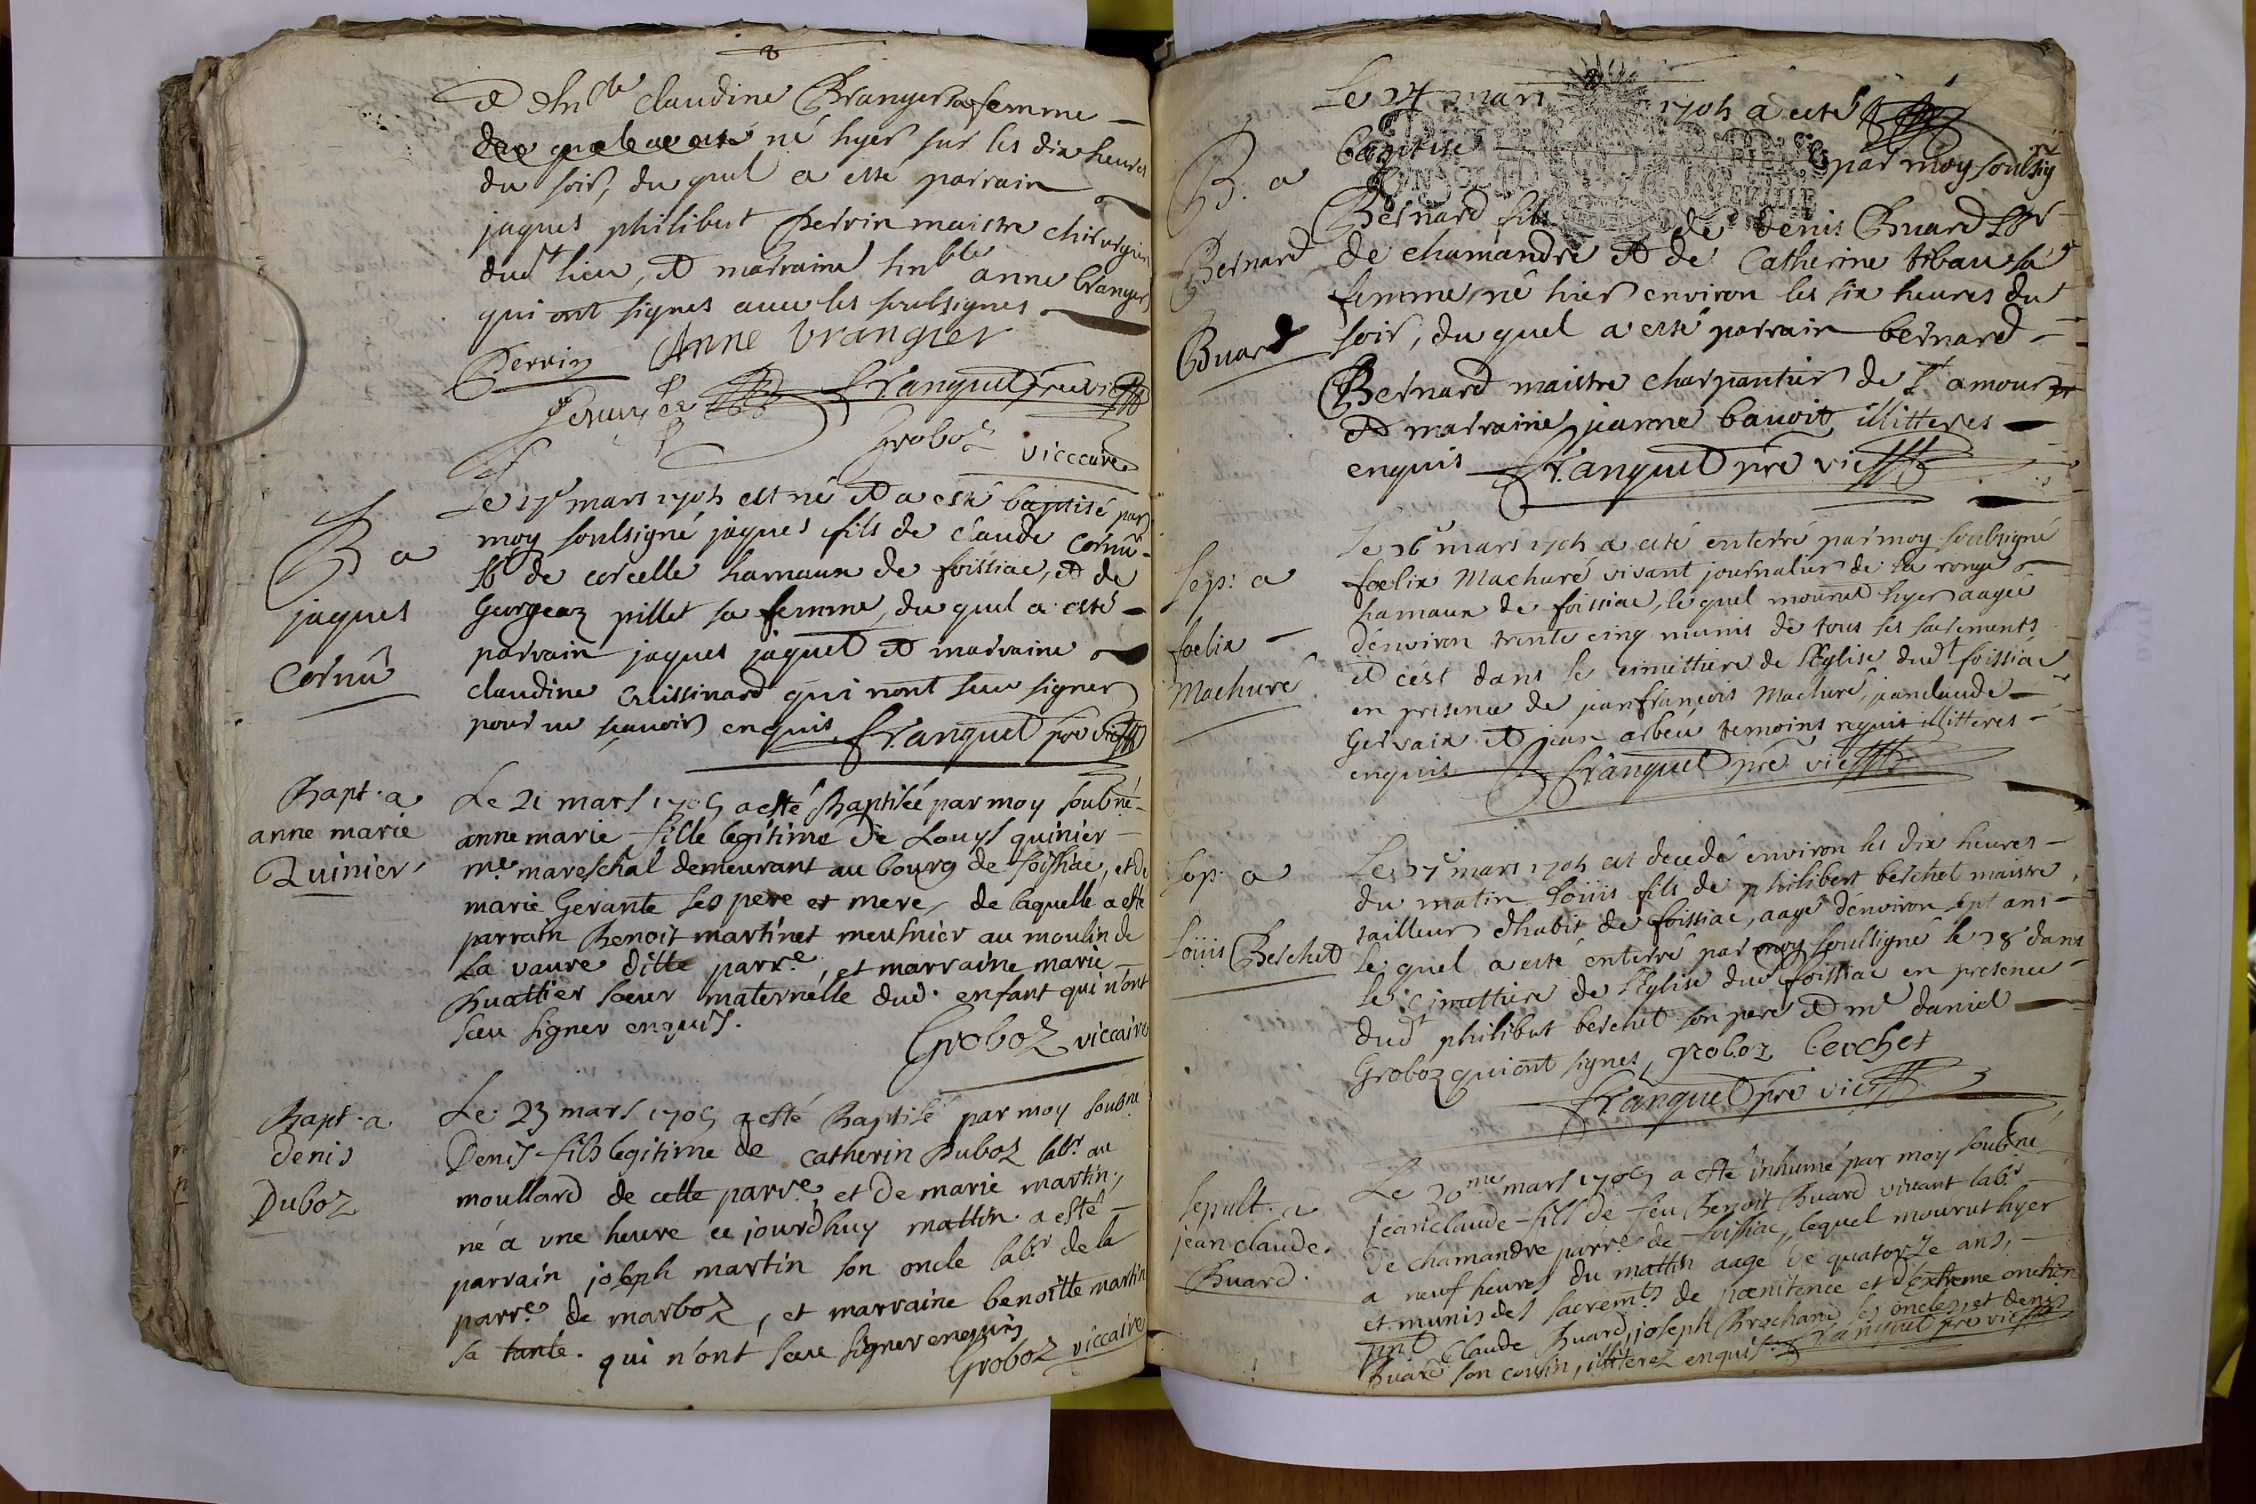 8
et hnble claudine Brangier sa femme
né hyer sur les dix heures
du soir, du quel a esté parrain
jaques philibert Perrin maistre chirurgien
dudt lieu, et marraine hnble anne brangier
qui ont signes avec les soubsignes
Perrin Anne brangier
franquet pre vic
Groboz
viccaire
B. a
jaques
Cornu
Le 17e mars 1705 est né et a esté baptisé par
moy soubsigné jaques fils de claude cornu
lbr de corcelle hamaux de foissiac, et de
pillet sa femme, du quel a esté
parrain jaques jaquet et marraine
claudine qui nont sceu signer
pour ne scavoir enquis franquet pre vic
Bapt. a
anne marie
Quinier
Le 21 mars 1705 a esté Baptisée par moy soubné
anne marie fille legitime de Louys quinier
me mareschal demeurant au bourg de foissiac, et de
marie Gerante ses pere et mere, de laquelle a esté
parrain Benoit martinet meusnier au moulin de
La vaure ditte parre, et marraine marie
Buattier soeur maternelle dud. enfant qui n'ont
sceu signer enquis.
Groboz viccaire
Bapt. a
denis
Duboz
Le 23 mars 1705 a esté Baptisé par moy soubné
Denis fils legitime de catherin Duboz labr au
moullard de cette parre, et de marie martin,
né a une heure ce jourd'huy mattin. a esté
parrain joseph martin son oncle labr de la
parre de marboz, et marraine benoitte martin
sa tante. qui n'ont sceu signer enquis
Groboz viccaire
Le 24 mars 1705 a esté
B. a
Bernard
Buard
baptisé par moy soubsigné
Bernard fils de denis Buard lbr
de chamandré et de Catherine sa
femme, né hier environ les six heures du
soir, du quel a esté parrain bernard
Bernard maistre charpantier de st amour
et marraine, jeanne bauoit illitteres
enquis franquet pre vic
Sep: a
foelix
Machuré
Le 26e mars 1705 a esté enterré par moy soubsigné
foelix Machuré vivant journalier de la ronge
hamaux de foissiac, le quel mourut hyer aagée
d'environ trente cinq munis de tous les sacrements
et c'est dans le cimettiere de l'Eglise dudt foissiac
en presence de jeanfrançois Machuré, jeanclaude
Gervain et jean arbeu temoins requis illitteres
enquis franquet pre vic
Sep: a
Loüis Berchet
Le 27e mars 1705 est decedé environ les dix heures
du matin Loüis fils de philibert berchet maistre
tailleur d'habit de foissiac, aagé d'environ sept ans
le quel a esté enterré par moy soulsigné le 28 dans
le cimettiere de l'Eglise dud foissiac en presence
dudt philibert berchet son pere et me daniel
Groboz qui ont signes, Groboz berchet
franquet pre vic
Sepult. a
jean claude.
Buard.
Le 30me mars 1705 a esté inhumé par moy soubné
jean claude fils de feu Benoit Buard vivant labr
de chamandré parre de foissiac, lequel mourut hyer
a neuf heures du mattin aagé de quatorze ans,
et munis des sacremts de poenitence et d'extreme onction
pnt Claude Buard, joseph Brochand ses oncles, et denis
Buard son cousin, illiterez enquis. franquet pre vic